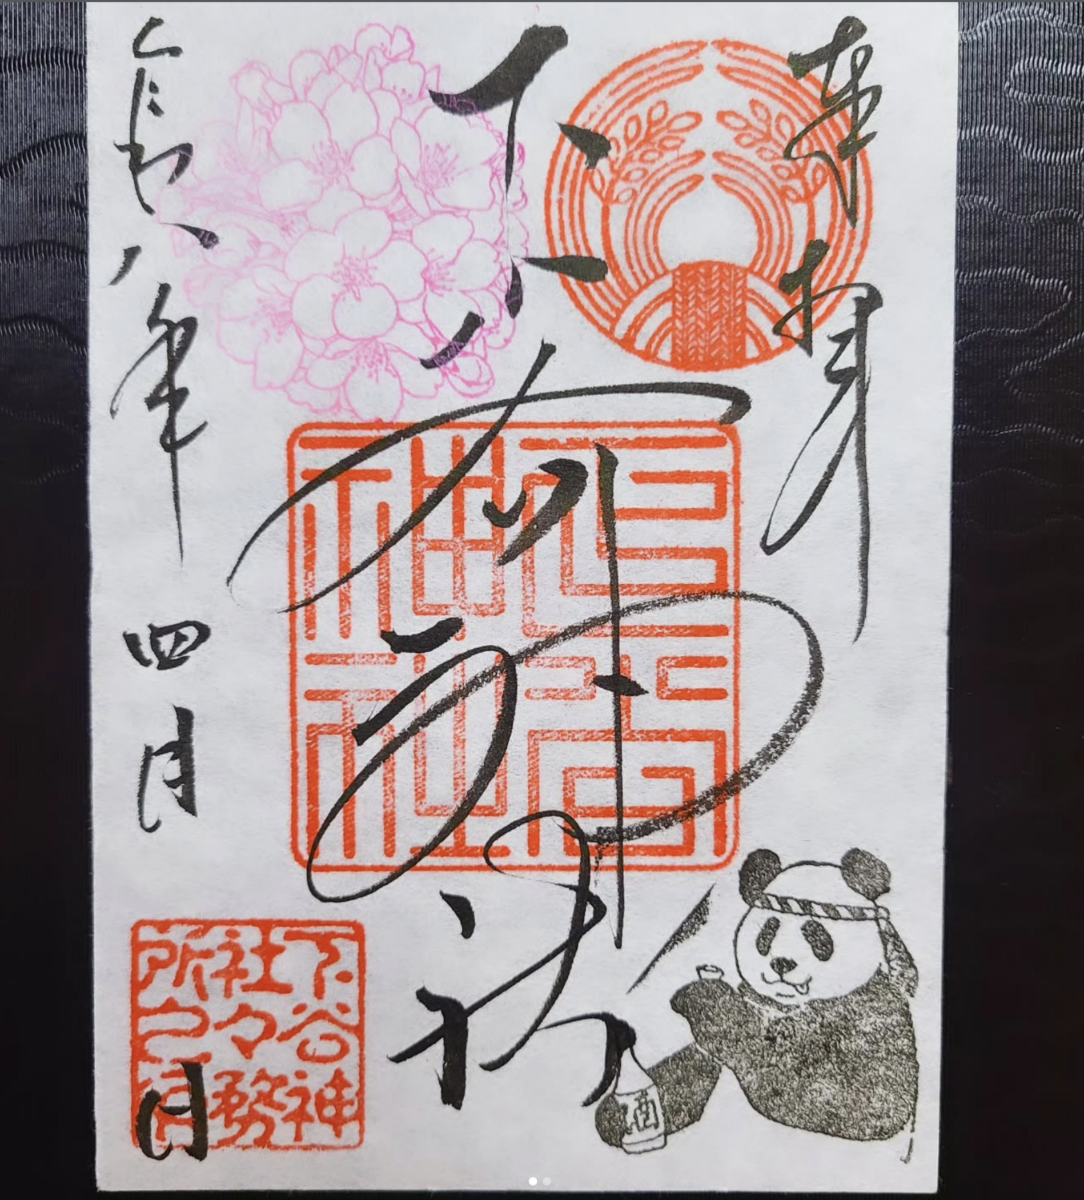 奉拝
下谷神社
令和八年四月 日
下谷神社
下谷神
社々務
所之印
酒